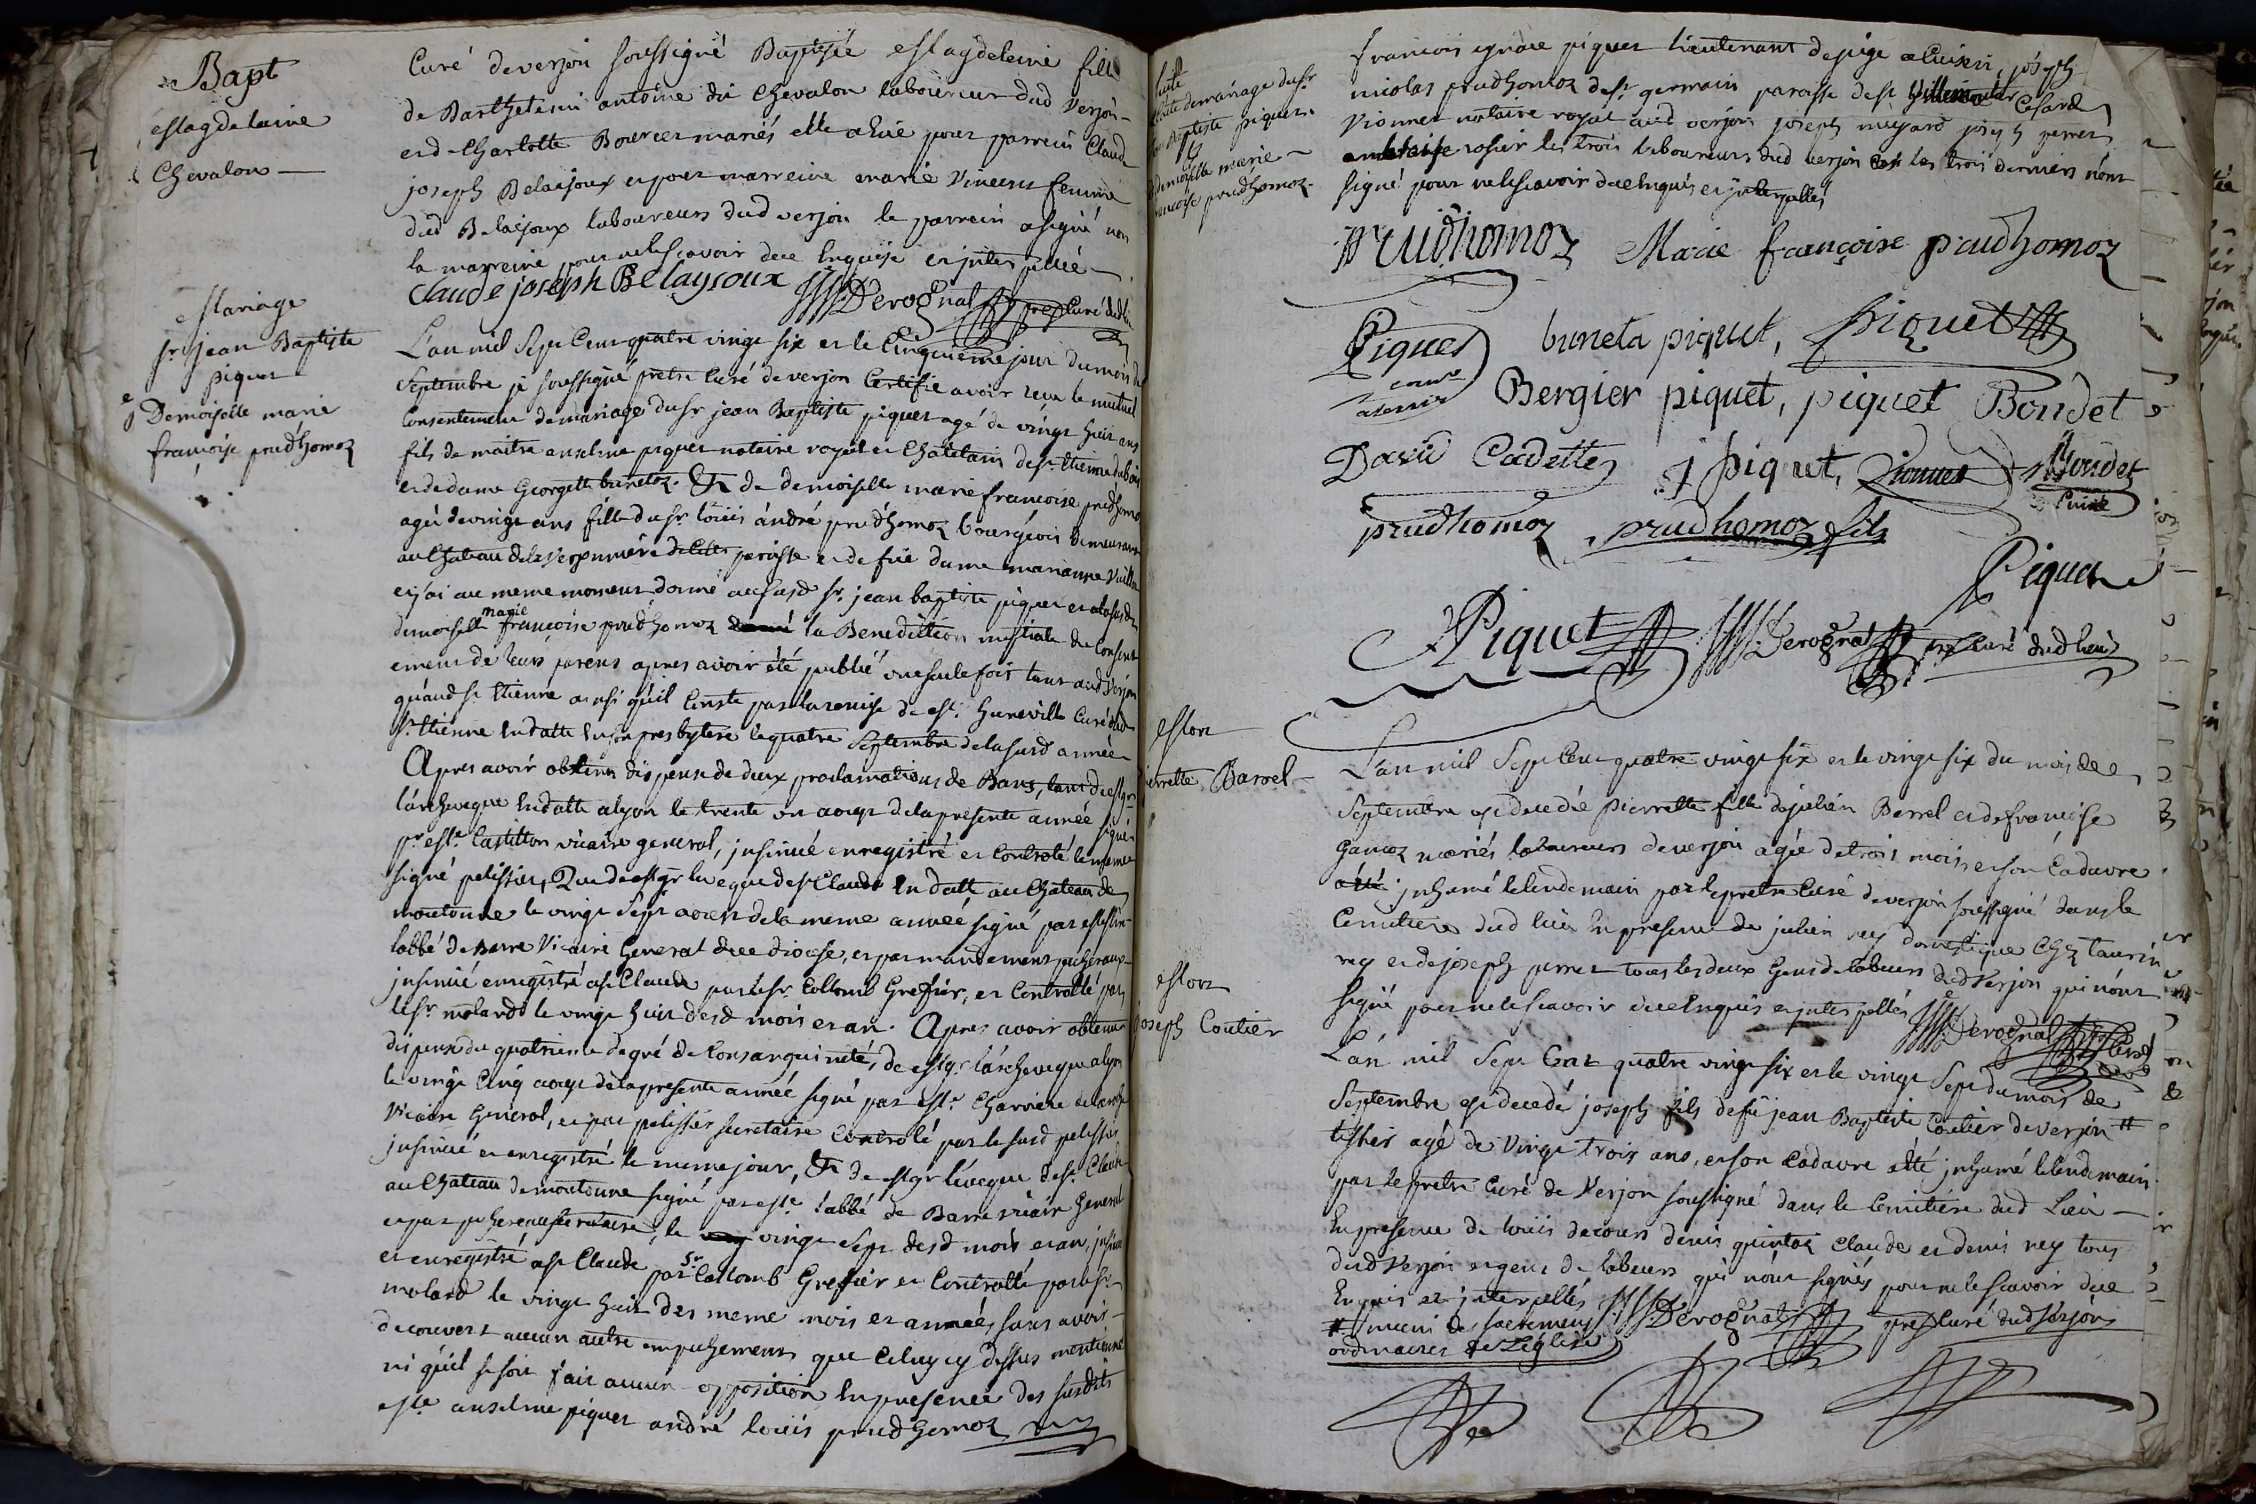 Bapt
Magdelaine
Chevalon
Curé de verjon soussigné Baptisée Magdeleine fille
de Barthelemi antoine dit Chevalon laboureur dud Verjon
et de Charlotte Bourcet mariés elle a eüe pour parrein Claude
joseph Belaijoux et pour marreine marie Vincent femme
dud Belaijoux laboureurs dud verjon le parrein a signé non
la marreine pour ne le scavoir de ce Enquise et jnterpellée
Claude joseph Belaysoux Derognat pretre Curé dud lieu
Mariage
sr jean Baptiste
piquet
et
Demoiselle marie
françoise prudhomoz
L'an mil Sept Cent quatre vingt six et le Cinquieme jour du mois de
Septembre je soussigné pretre Curé de verjon Certifie avoir recu le mutuel
Consentement de mariage du sr jean Baptiste piquet agé de vingt huit ans
fils de maitre anselme piquet notaire royal et Châtelain de st Etienne dubois
et de dame Georgette bunetoz. Et de demoiselle marie francoise prudhomoz
agée de vingt ans fille du sr loüis andré prudhomoz bourgeois demeurant
au Chateau de la paroisse et de füe dame marianne
et j'ai au meme moment donné au susd sr. jean baptiste piquet et a la susd
demoiselle marie francoise prudhomoz la Benediction nuptiale du Consent
ement de leurs parens apres avoir été publié une seule fois tant aud Verjon
qu'aud st Etienne ainsi qu'il Conste par la remise de Mr. huneville Curé dud
st. Etienne En datte En son presbytere le quatre Septembre de la susd année
Apres avoir obtenu dispense de deux proclamations de Bans, tant de Mgr
l'archeveque En datte a lyon le trente un aoust de la presente année signé
pr Mr. Castillon vicaire general, jnsinué enregistré et Controlé le meme
signé pelissier, Que de Mgr Eveque de st Claude En datte au Chateau de
moutonne le vingt Sept aoust de la meme année signé par
labbé de Barre Vicaire General dud diocese, et par mandement
jnsinué enregistré a st Claude par le sr. Collomb Grefier, et Controllé par
le sr. molard le vingt huit desd mois et an. Apres avoir obtenu
dispense du quatrieme degré de Consanguinité, de Mgr. l'archeveque a lyon
le vingt Cinq aoust de la presente année signé par Mr. Charriere
Vicaire General, et par pelissier secretaire Controlé par le susd pelissier
jnsinué et enregistré le meme jour, Et de Mgr l'éveque de st. Claude
au Chateau de moutonne signé par Mr. l'abbé de Barre vicaire General
et par secretaire, le vingt Sept desd mois et an, jnsinué
et enregistré a st Claude par sr Collomb Grefier et Controllé par le sr
molard le vingt huit des meme mois et année, sans avoir
decouvert aucun autre empechement que Celuy cy dessus mentionné
ni qu'il se soit fait aucun opposition En presence des susdits
Mre anselme piquet andré loüis prudhomoz
suite
de mariage du sr.
jean Baptiste piquet
et
demoiselle marie
francoise prudhomoz
francois ignace piquet lieutenant de juge a Cuiseri, joseph
nicolas prudhomoz de st. germain paroisse de st Cesard
Vionnet notaire royal aud verjon joseph joseph perret
ambroise rosier les trois laboureurs dud verjon les trois derniers n'ont
signé pour ne le scavoir de ce Enquis et jnterpellés
Prudhomoz Marie françoise prudhomoz
Piquet buneta piquet, piquet
Bergier piquet, piquet Boudet
David Cadette j piquet, Vionnet Boudet
Cuiré
prudhomoz prudhomoz fils
Piquet
Piquet Derognat pre Curé dud lieu
Mort
pierrette Barrel
L'an mil Sept Cent quatre vingt six et le vingt six du mois de
Septembre est decedée pierrette fille de julien Barrel et de francoise
mariés laboureurs de verjon agée de trois mois et son Cadavre
a été jnhumé le lendemain par le pretre Curé de verjon soussigné dans le
Cemitiere dud lieu En presence de julien rey domestique Chez taurin
rey et de joseph perret tous les deux Gens de labeurs dud Verjon qui n'ont
signé pour ne le scavoir de ce Enquis et jnterpellés Derognat Curé
Mort
joseph Coutier
L'an mil Sept Cent quatre vingt six et le vingt Sept du mois de
Septembre est decedé joseph fils de feu jean Baptiste Coutier de verjon #
tissier agé de Vingt trois ans, et son Cadavre a été jnhumé le lendemain
par le pretre Curé de Verjon soussigné dans le Cemitiere dud Lieu
En presence de loüis decours denis quintoz Claude et denis rey tous
dud Verjon et gens de labeurs qui n'ont signés pour ne le scavoir de ce
Enquis et jnterpellés Derognat pre Curé dud Verjon
# muni des sacremens
ordinaires de l'église